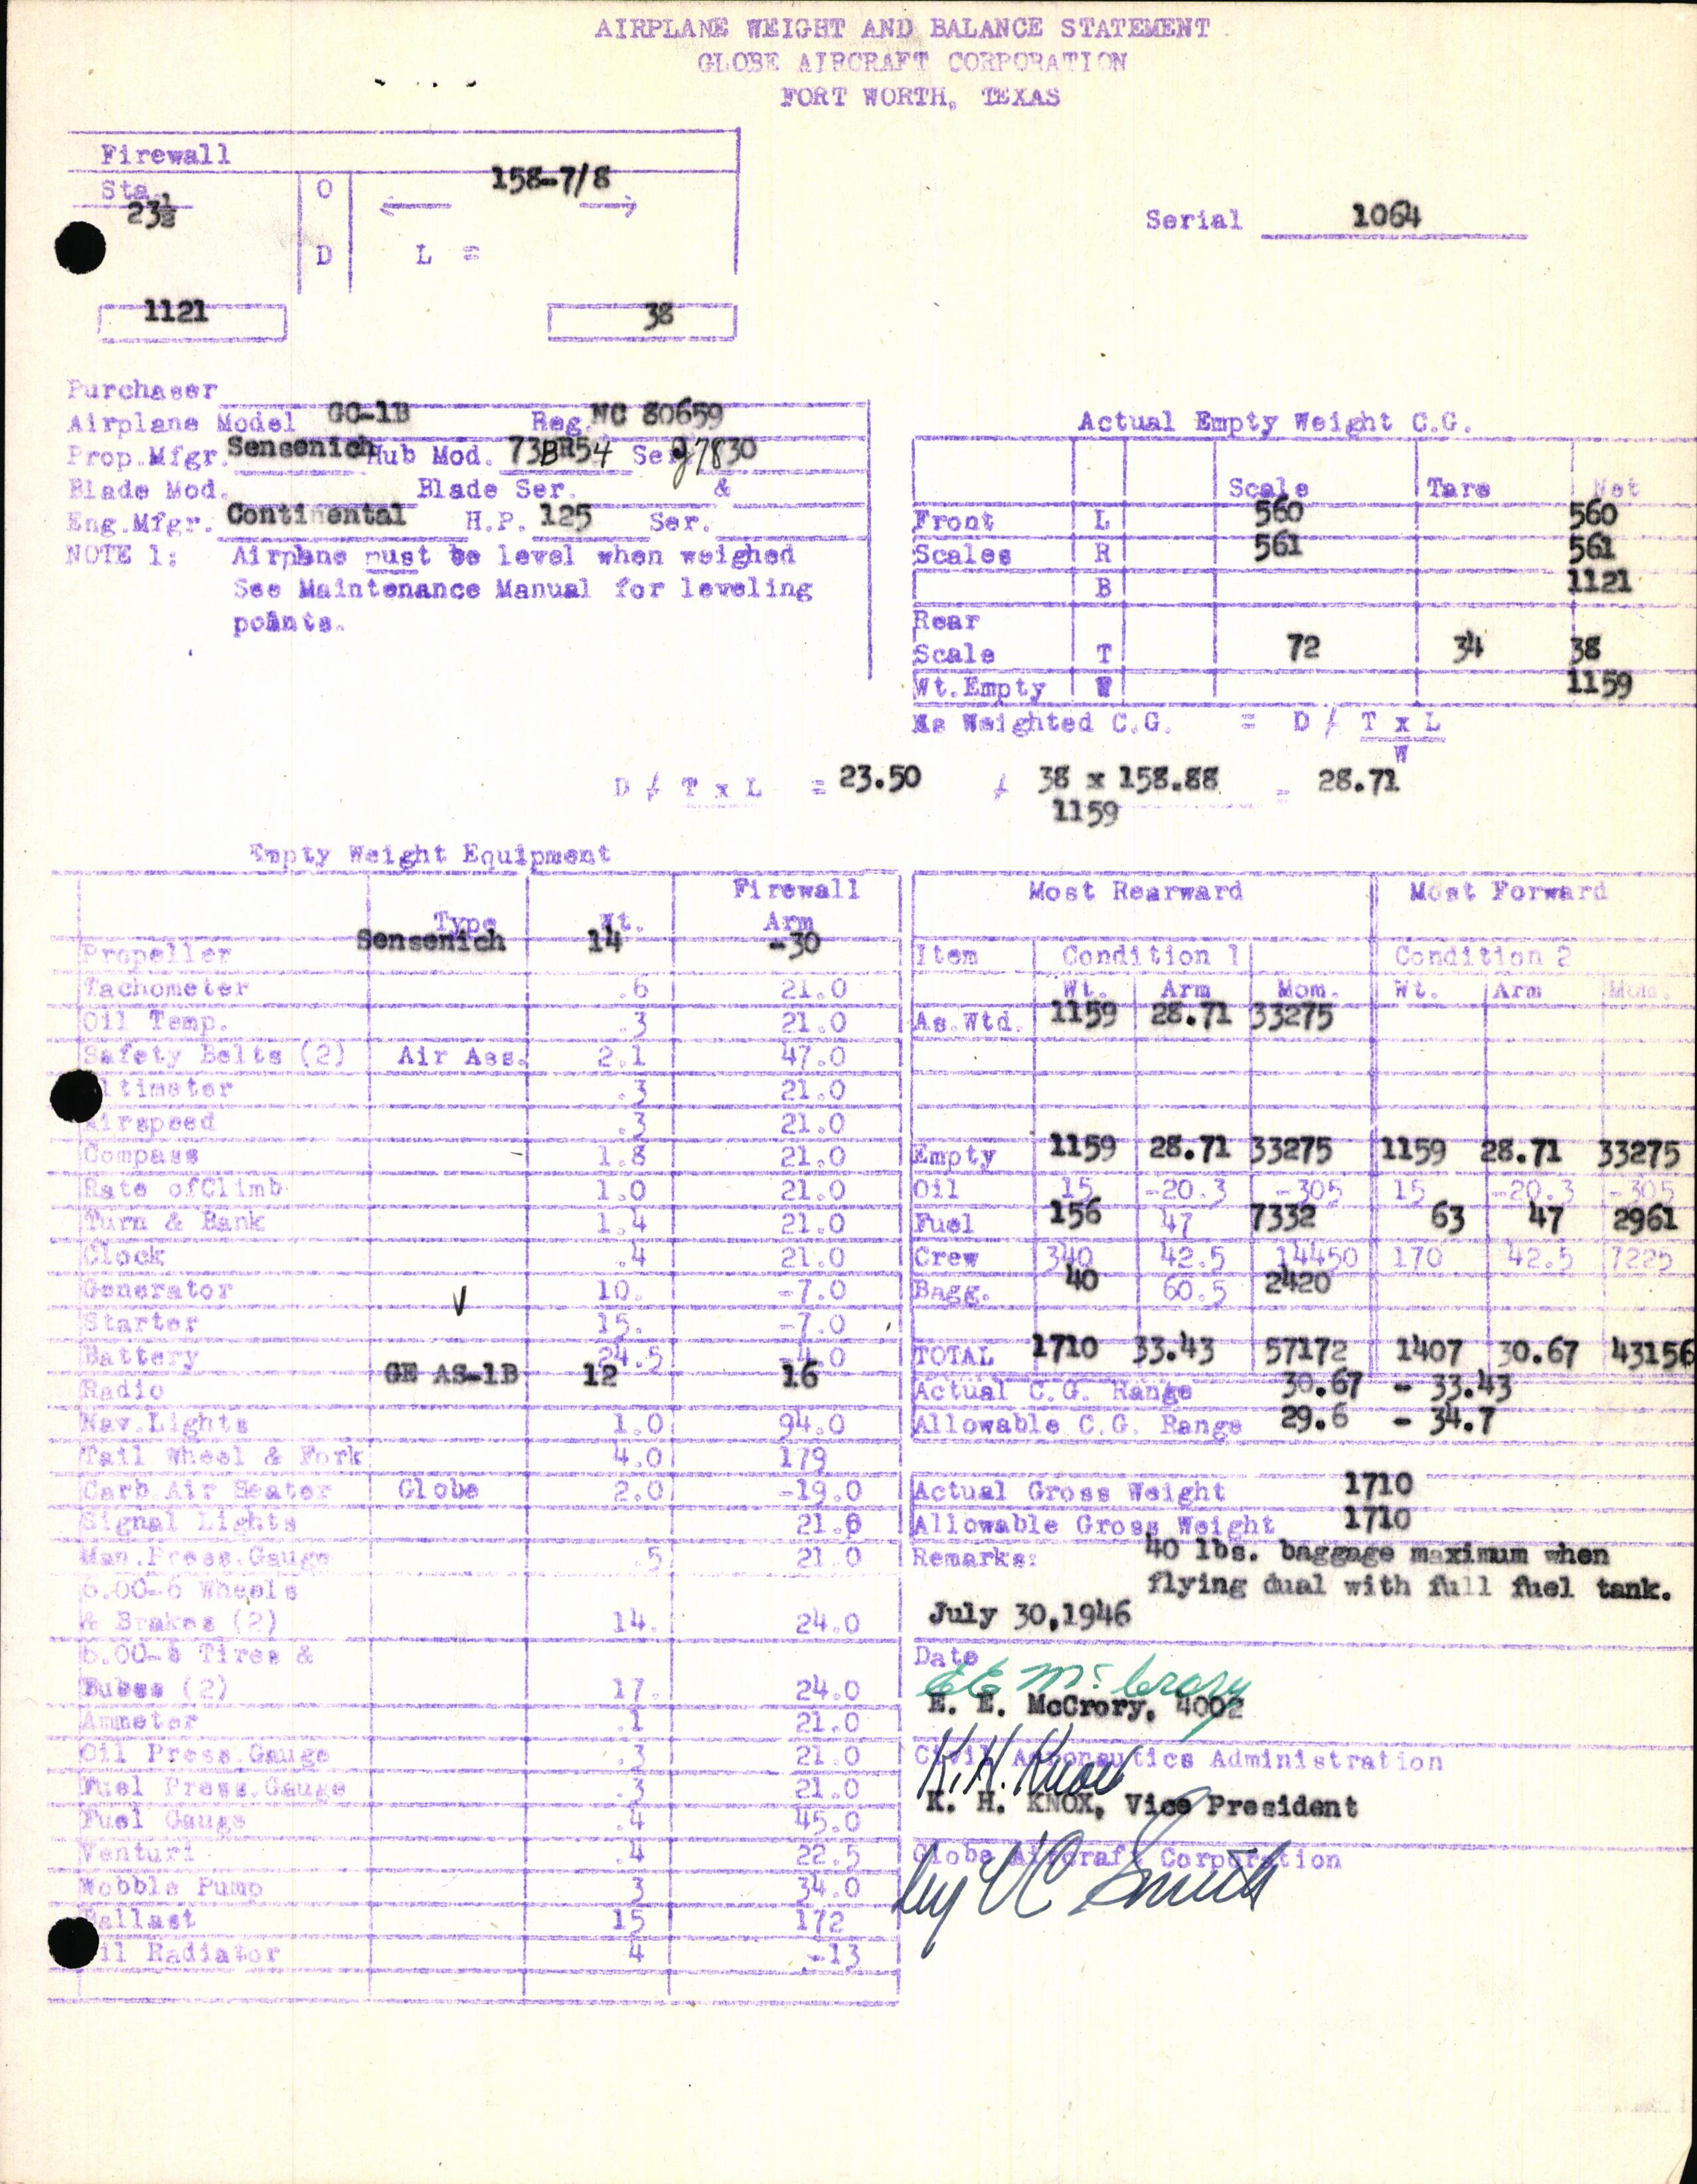 AIRPLANE WEIGHT AND BALANCE STATEMENT
GLOBE AIRCRAFT CORPORATION
FORT WORTH, TEXAS
Firewall
Sta. O 158-7/8
23½
D L =
Serial 1064
1121 38
Purchaser
Airplane Model GC-1B Reg. NC 80659
Prop.Mfgr. Sensenich Hub Mod. 73BR54 Ser. 97830
Blade Mod. Blade Ser. &
Eng.Mfgr. Continental H.P. 125 Ser.
NOTE 1: Airplane must be level when weighed
See Maintenance Manual for leveling
points.
Actual Empty Weight C.G.
Scale Tare Net
Front L 560 560
Scales R 561 561
B 1121
Rear
Scale T 72 34 38
Wt.Empty W 1159
As Weighted C.G. = D / T x L
W
D / T x L = 23.50 / 38 x 158.88 = 28.71
1159
Empty Weight Equipment
Type Wt. Firewall Arm
Propeller Sensenich 14 -30
Tachometer .6 21.0
Oil Temp. .3 21.0
Safety Belts (2) Air Ass. 2.1 47.0
Altimeter .3 21.0
Airspeed .3 21.0
Compass 1.8 21.0
Rate ofClimb 1.0 21.0
Turn & Bank 1.4 21.0
Clock .4 21.0
Generator 10. -7.0
Starter 15. -7.0
Battery 24.5 -4.0
Radio GE AS-1B 12 16
Nav.Lights 1.0 94.0
Tail Wheel & Fork 4.0 179
Carb.Air Heater Globe 2.0 -19.0
Signal Lights 21.6
Man.Press.Gauge .5 21.0
6.00-6 Wheels
& Brakes (2) 14. 24.0
6.00-6 Tires &
Tubes (2) 17. 24.0
Ammeter .1 21.0
Oil Press.Gauge .3 21.0
Fuel Press.Gauge .3 21.0
Fuel Gauge .4 45.0
Venturi .4 22.5
Wobble Pump 3 34.0
Ballast 15 172
Oil Radiator 4 -13
Most Rearward Most Forward
Item Condition 1 Condition 2
Wt. Arm Mom. Wt. Arm Mom.
As.Wtd. 1159 28.71 33275
Empty 1159 28.71 33275 1159 28.71 33275
Oil 15 -20.3 -305 15 -20.3 -305
Fuel 156 47 7332 63 47 2961
Crew 340 42.5 14450 170 42.5 7225
Bagg. 40 60.5 2420
TOTAL 1710 33.43 57172 1407 30.67 43156
Actual C.G. Range 30.67 - 33.43
Allowable C.G. Range 29.6 - 34.7
Actual Gross Weight 1710
Allowable Gross Weight 1710
Remarks: 40 lbs. baggage maximum when
flying dual with full fuel tank.
July 30,1946
Date
EE McCrory
E. E. McCrory, 4002
Civil Aeronautics Administration
K.H. Knox
K. H. KNOX, Vice President
Globe Aircraft Corporation
by Smith